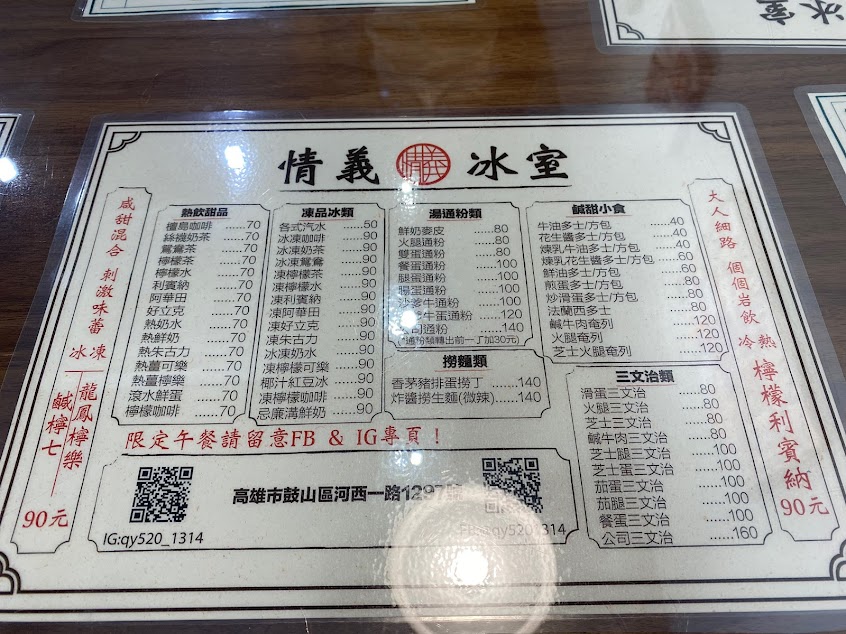 情義 情義 冰室
咸甜混合 刺激味蕾
冰凍
龍鳳檸樂
鹹檸七
90元
熱飲甜品
檀島咖啡 ......70
絲襪奶茶 ......70
鴛鴦茶 ......70
檸檬茶 ......70
檸檬水 ......70
利賓納 ......70
阿華田 ......70
好立克 ......70
熱奶水 ......70
熱鮮奶 ......70
熱朱古力 ......70
熱薑可樂 ......70
熱薑檸樂 ......70
滾水鮮蛋 ......70
檸檬咖啡 ......70
凍品冰類
各式汽水 ......50
冰凍咖啡 ......90
冰凍奶茶 ......90
冰凍鴛鴦 ......90
凍檸檬茶 ......90
凍檸檬水 ......90
凍利賓納 ......90
凍阿華田 ......90
凍好立克 ......90
凍朱古力 ......90
冰凍奶水 ......90
凍檸檬可樂 ......90
椰汁紅豆冰 ......90
凍檸檬咖啡 ......90
忌廉溝鮮奶 ......90
湯通粉類
鮮奶麥皮 ......80
火腿通粉 ......80
雙蛋通粉 ......80
餐蛋通粉 ......100
腿蛋通粉 ......100
腸蛋通粉 ......100
沙爹牛通粉 ......100
牛蛋通粉 ......120
司通粉 ......140
(通粉類轉出前一丁加30元)
撈麵類
香茅豬排蛋撈丁 ......140
炸醬撈生麵(微辣) ......140
鹹甜小食
牛油多士/方包 ......40
花生醬多士/方包 ......40
煉乳牛油多士/方包 ......40
煉乳花生醬多士/方包 ......60
鮮油多士/方包 ......60
煎蛋多士/方包 ......80
炒滑蛋多士/方包 ......80
法蘭西多士 ......80
鹹牛肉奄列 ......120
火腿奄列 ......120
芝士火腿奄列 ......120
三文治類
滑蛋三文治 ......80
火腿三文治 ......80
芝士三文治 ......80
鹹牛肉三文治 ......80
芝士蛋三文治 ......100
芝士腿三文治 ......100
茄蛋三文治 ......100
茄腿三文治 ......100
餐蛋三文治 ......100
公司三文治 ......160
大人細路 個個岩飲
冷熱
檸檬利賓納
90元
限定午餐請留意FB & IG專頁！
高雄市鼓山區河西一路1297號
IG:qy520_1314
qy520_1314
冰室